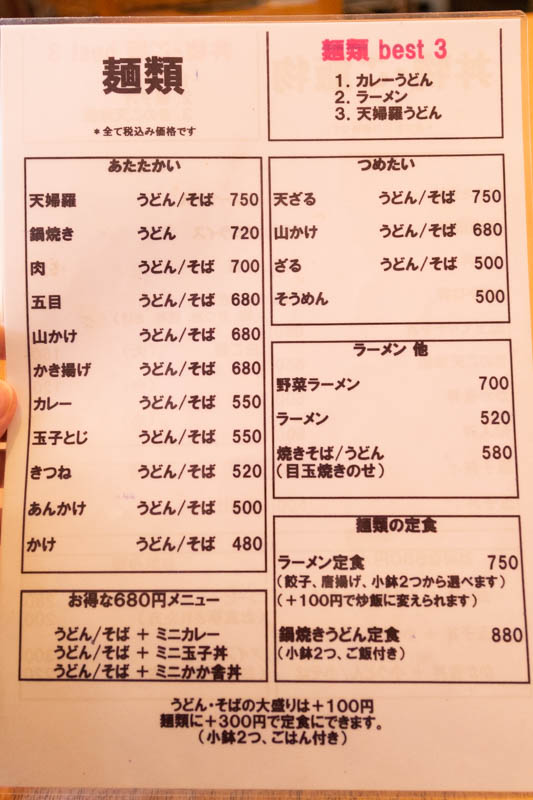 麺類
*全て税込み価格です
麺類 best 3
1. カレーうどん
2. ラーメン
3. 天婦羅うどん
あたたかい
天婦羅 うどん/そば 750
鍋焼き うどん 720
肉 うどん/そば 700
五目 うどん/そば 680
山かけ うどん/そば 680
かき揚げ うどん/そば 680
カレー うどん/そば 550
玉子とじ うどん/そば 550
きつね うどん/そば 520
あんかけ うどん/そば 500
かけ うどん/そば 480
お得な680円メニュー
うどん/そば + ミニカレー
うどん/そば + ミニ玉子丼
うどん/そば + ミニかか香丼
つめたい
天ざる うどん/そば 750
山かけ うどん/そば 680
ざる うどん/そば 500
そうめん 500
ラーメン 他
野菜ラーメン 700
ラーメン 520
焼きそば/うどん 580
(目玉焼きのせ)
麺類の定食
ラーメン定食 750
(餃子、唐揚げ、小鉢2つから選べます)
(+100円で炒飯に変えられます)
鍋焼きうどん定食 880
(小鉢2つ、ご飯付き)
うどん・そばの大盛りは+100円
麺類に+300円で定食にできます。
(小鉢2つ、ごはん付き)